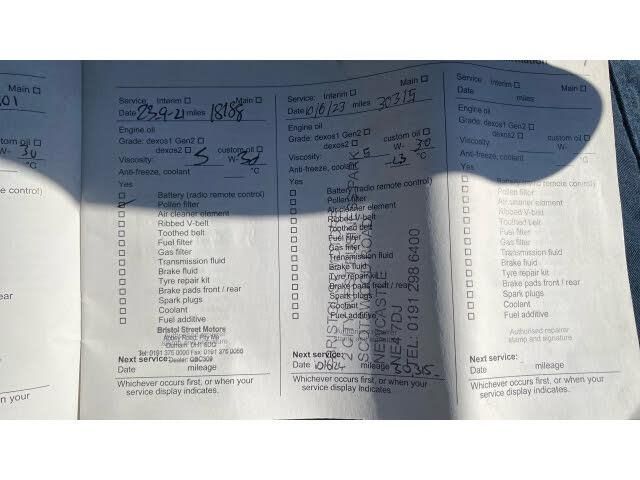 Main ☐
01
tom oil ☐
W- 30
°C
e control)
ear
n your
Service: Interim ☐ Main ☐
Date 23.9.21 miles 18188
Engine oil
Grade: dexos1 Gen2 ☐
dexos2 ☐ custom oil ☐
Viscosity: 5 W- 30
Anti-freeze, coolant °C
Yes
☐ Battery (radio remote control)
☑ Pollen filter
☐ Air cleaner element
☐ Ribbed V-belt
☐ Toothed belt
☐ Fuel filter
☐ Gas filter
☐ Transmission fluid
☐ Brake fluid
☐ Tyre repair kit
☐ Brake pads front / rear
☐ Spark plugs
☐ Coolant
☐ Fuel additive
Bristol Street Motors
Abbey Road, Pity Me
Durham
Tel: 0191 375 0000 Fax: 0191 375 0050
Next service:
Date mileage
Whichever occurs first, or when your
service display indicates.
Service: Interim ☐ Main ☐
Date 10/6/23 miles 30315
Engine oil
Grade: dexos1 Gen2 ☐
dexos2 ☐ custom oil ☐
Viscosity: 5 W- 30
Anti-freeze, coolant -23 °C
Yes
☐ Battery (radio remote control)
☐ Pollen filter
☐ Air cleaner element
☐ Ribbed V-belt
☐ Toothed belt
☐ Fuel filter
☐ Gas filter
☐ Transmission fluid
☐ Brake fluid
☐ Tyre repair kit
☐ Brake pads front / rear
☐ Spark plugs
☐ Coolant
☐ Fuel additive
NEWCASTLE
NE4 7DJ
TEL: 0191 298 6400
Next service:
Date 10/6/24 mileage 30315
Whichever occurs first, or when your
service display indicates.
Service: Interim ☐ Main ☐
Date miles
Engine oil
Grade: dexos1 Gen2 ☐
dexos2 ☐ custom oil ☐
Viscosity: W-
Anti-freeze, coolant °C
Yes
☐ Battery (radio remote control)
☐ Pollen filter
☐ Air cleaner element
☐ Ribbed V-belt
☐ Toothed belt
☐ Fuel filter
☐ Gas filter
☐ Transmission fluid
☐ Brake fluid
☐ Tyre repair kit
☐ Brake pads front / rear
☐ Spark plugs
☐ Coolant
☐ Fuel additive
Authorised repairer
stamp and signature
Next service:
Date mileage
Whichever occurs first, or when your
service display indicates.